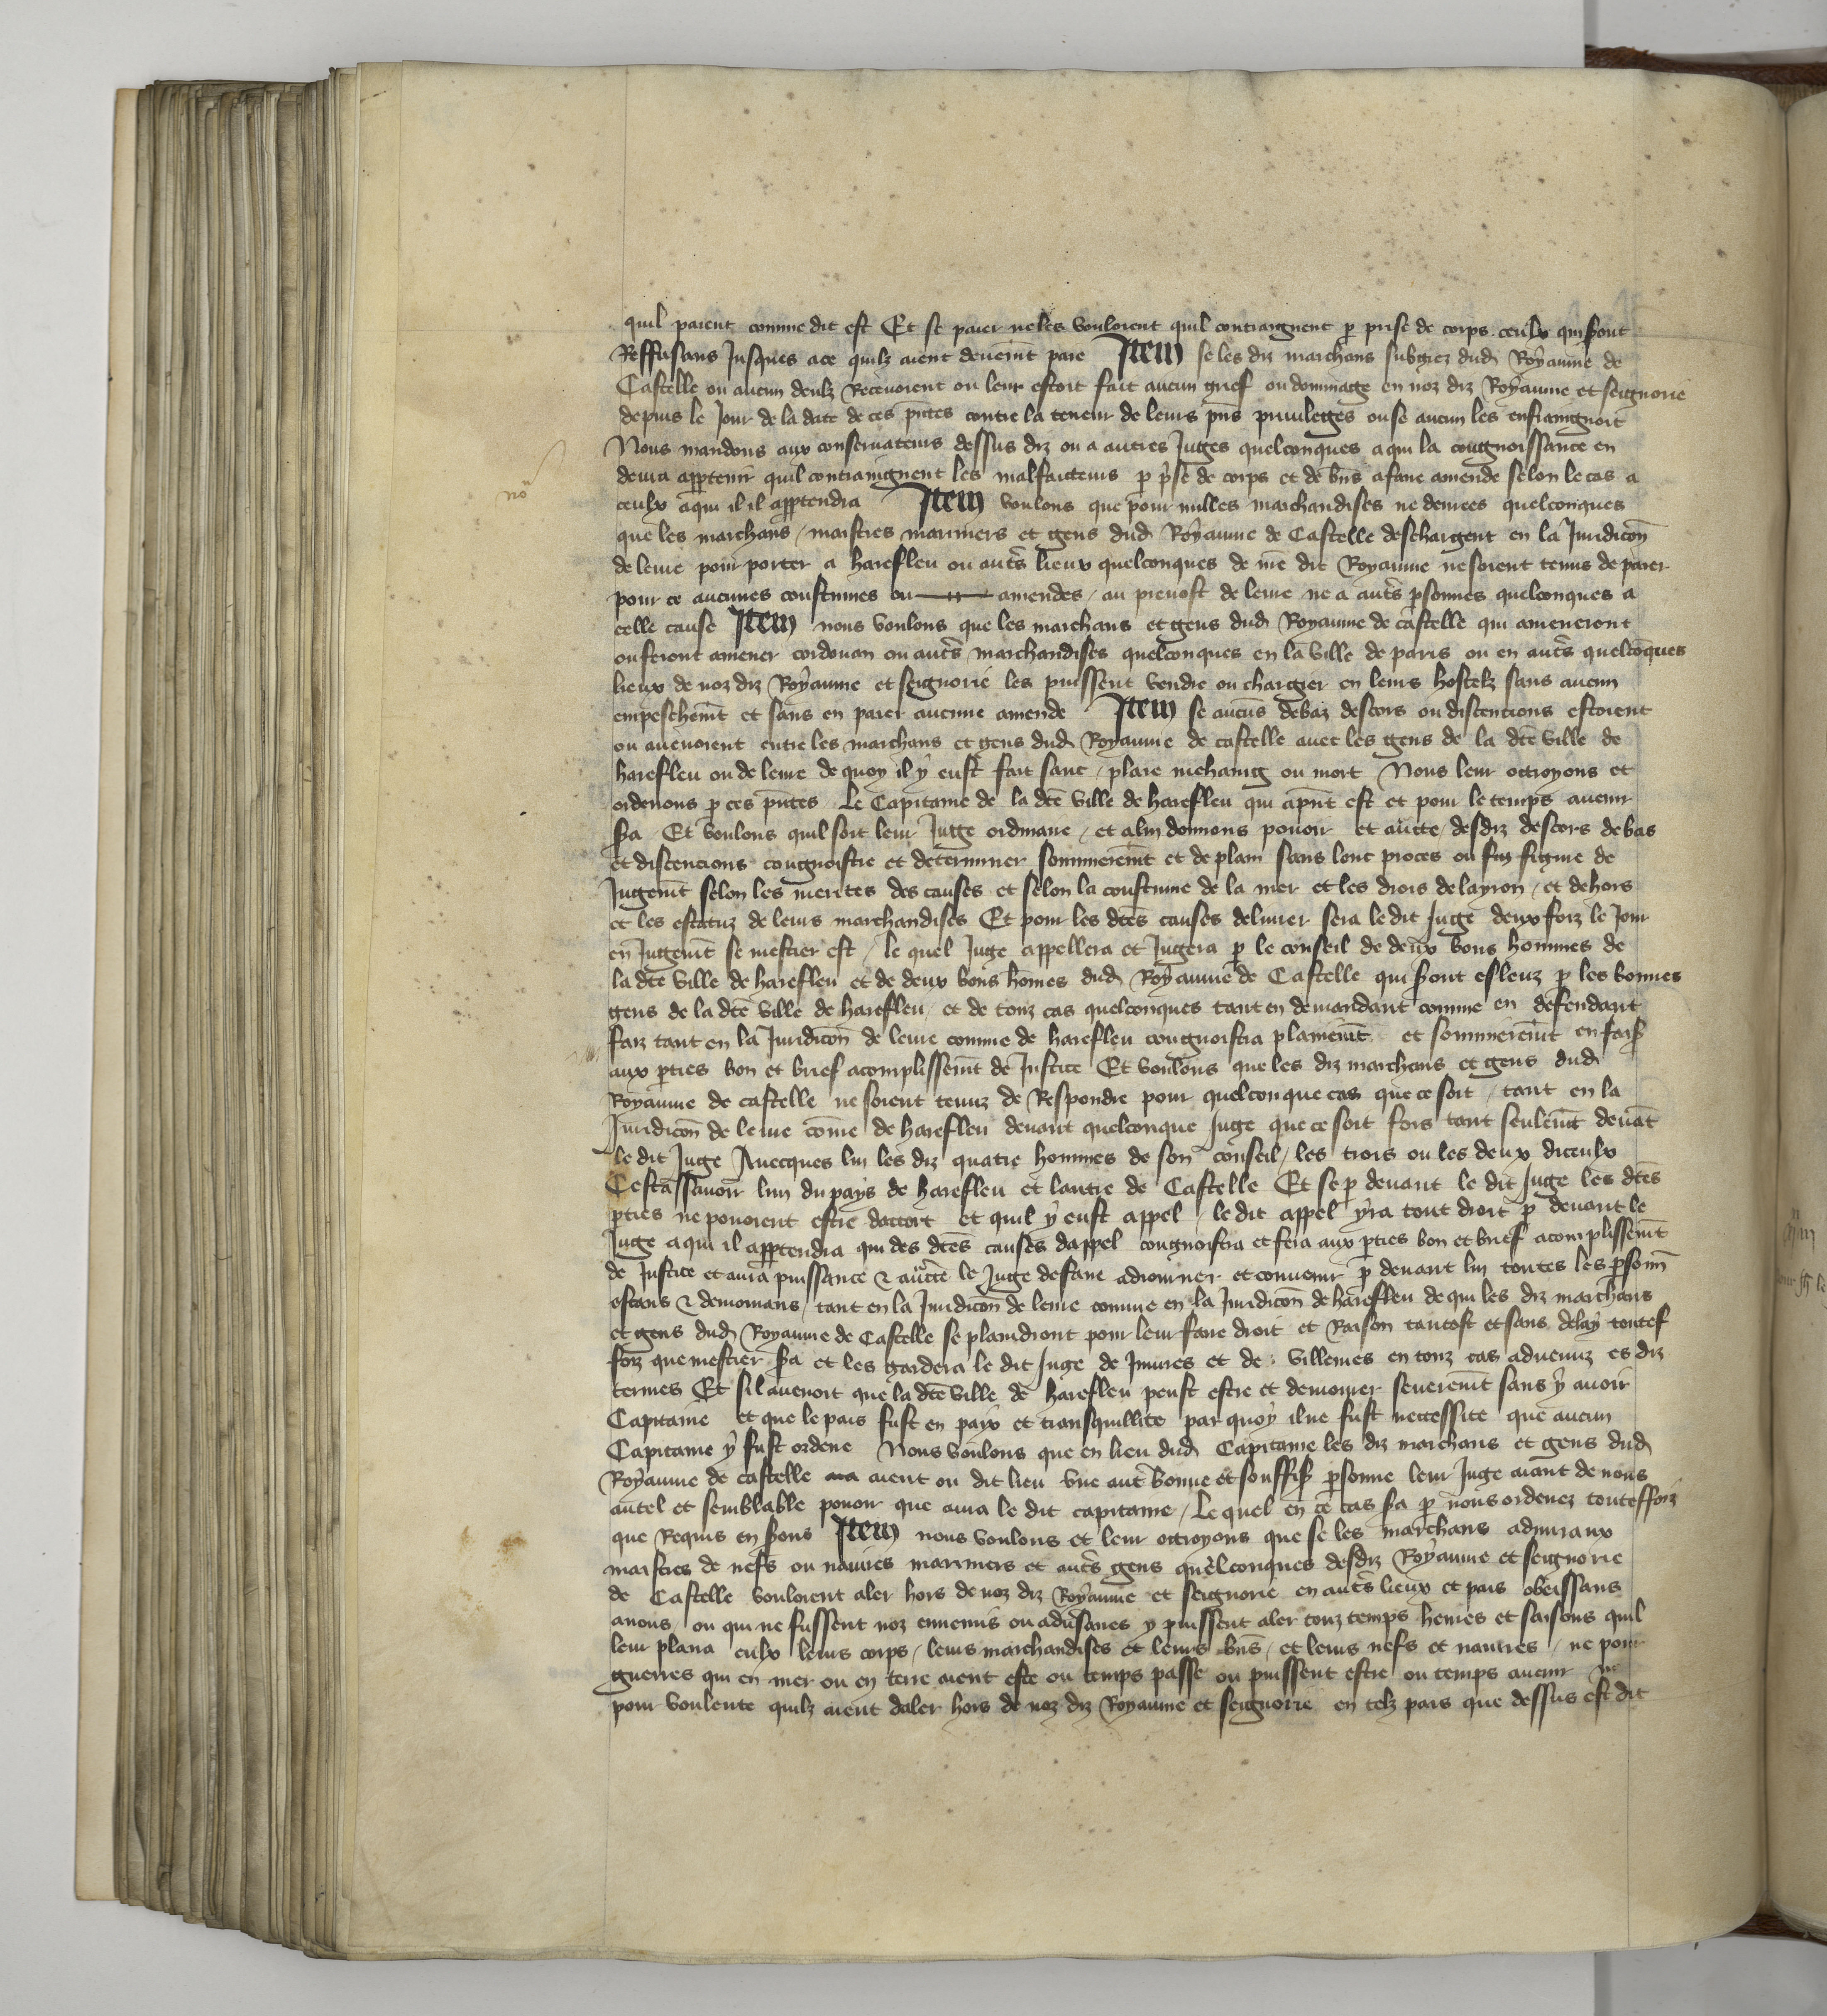 quil paient comme dit est Et se paier ne les vouloient quil contraignent p̲ prise de corps ceulx qui s̲ont
Reffusans Jusques ace quilz aient deuem̄t paie Item se les diz marchans subgiez dud Royaume de
Castelle ou aucun deulx Receuoient ou leur estoit fait aucun grief ou dommage en noz diz Royaume et seignorie
depuis le Jour de la date de ces p̄ntes contre la teneur de leurs p̄ns priuileges ou se aucun les enfraingnoit
Nous mandons aux conseruateurs dessus diz ou a autres Juges quelconques a qui la congnoissance en
deura app̲tenir quil contraingnent les malfaicteurs p̲ p̄se de corps et de bn̄s a faire amende selon le cas a
no
ceulx a qui il il app̲tendra Item voulons que pour nulles marchandises ne denrees quelconques
que les marchans / maistres mariniers et gens dud Royaume de Castelle deschargent en la Juridicōn
de leure pour porter a harefleu ou aut̄s lieux quelconques de n̄re dit Royaume ne soient tenus de paier
pour ce aucunes coustumes ou amendes / au preuost de leure ne a aut̄s p̲sonnes quelconques a
celle cause Item nous voulons que les marchans et gens dud Royaume de castelle qui ameneront
ou feront amener cordouan ou aut̄s marchandises quelconques en la ville de paris ou en aut̄s quelcōques
lieux de noz diz Royaume et seignorie les puissent vendre ou chargier en leurs hostelz sans aucun
empeschem̄t et sans en paier aucune amende Item se aucūs debaz descors ou discencions estoient
ou auenoient entre les marchans et gens dud Royaume de castelle auec les gens de la dc̄e ville de
harefleu ou de leure de quoy il y eust fait sanc / plaie mehaing ou mort Nous leur octroyons et
ordenons p̲ ces p̄ntes Le Capitaine de la dc̄e ville de harefleu qui ap̄nt est et pour le temps auenir
s̲a Et voulons quil soit leur Juge ordinaire / et a lui donnons pouoir et auc̄te / desdiz descors debas
et discencions congnoistre et determiner sommerem̄t et de plain sans lonc proces ou figure de
Jugem̄t selon les merites des causes et selon la coustume de la mer et les drois de layron / et dehors
et les estatuz de leurs marchandises Et pour les dc̄es causes deliurer sera le dit Juge deux foiz le Jour
en Jugem̄t se mestier est / le quel Juge appellera et Jugera p̲ le conseil de deux bons hommes de
la dc̄e ville de harefleu et de deux bons hōmes dud Royaume de Castelle qui s̲ont esleuz p̲ les bonnes
gens de la dc̄e ville de harefleu / et de touz cas quelconques tant en demandant comme en defendant
faiz tant en la Juridicōn de leure comme de harefleu congnoistra plainem̄t et sommerem̄t en fais̲
aux p̲ties bon et brief acomplissem̄t de Justice Et voulons que les diz marchans et gens dud
Royaume de castelle ne soient tenuz de Respondre pour quelconque cas que ce soit / tant en la
Juridicōn de leure cōme de harefleu deuant quelconque Juge que ce soit fors tant seulem̄t deuāt
le dit Juge Auecques lui les diz quatre hommes de son conseil / les trois ou les deux diceulx
Cestassauoir lun du pays de harefleu et lautre de Castelle Et se p̲ deuant le dit Juge les dc̄es
p̲ties ne pouoient estre daccort et quil y eust appel / le dit appel yra tout droit p̲ deuant le
Juge a qui il app̲tendra qui des dc̄es causes dappel congnoistra et fera aux p̲ties bon et brief acomplissem̄t
de Justice et aura puissance & auc̄te le Juge de faire adiourner et conuenir p̲ deuant lui toutes les p̲sonn̄
estans & demourans / tant en la Juridicōn de leure comme en la Juridicōn de harefleu de qui les diz marchans
et gens dud Royaume de Castelle se plaindront pour leur faire droit et Raison tantost et sans delay toutef
foiz que mestier s̲a et les gardera le dit Juge de Iniures et de villenies en touz cas aduenuz es diz
termes Et sil auenoit que la dc̄e ville de harefleu peust estre et demourer seurem̄t sans y auoir
Capitaine et que le pais fust en paix et transquillite par quoy il ne fust neccessite que aucun
Capitaine y fust ordene Nous voulons que en lieu dud Capitaine les diz marchans et gens dud
Royaume de castelle aient ou dit lieu vne aut̄ bonne et souffis̲ p̲sonne leur Juge aiant de nous
autel et semblable pouoir que aura le dit capitaine / Le quel en ce cas s̲a p̲ nous ordenez touteffoiz
que Requis en s̲ons Item nous voulons et leur octroyons que se les marchans admiraux
maistres de nefs ou nauires mariniers et aut̄s gens quelconques desdiz Royaume et seignorie
de Castelle vouloient aler hors de noz diz Royaume et seignorie en aut̄s lieux et pais obeissans
anous / ou qui ne fussent noz ennemis ou adu̲saires y puissent aler touz temps heures et saisons quil
leur plaira eulx leurs corps / leurs marchandises et leurs bn̄s / et leurs nefs et nauires / ne pour
guerres qui en mer ou en terre aient este ou temps passe ou puissent estre ou temps auenir ne
pour voulente quilz aient daler hors de noz diz Royaume et seignorie en telz pais que dessus est dit